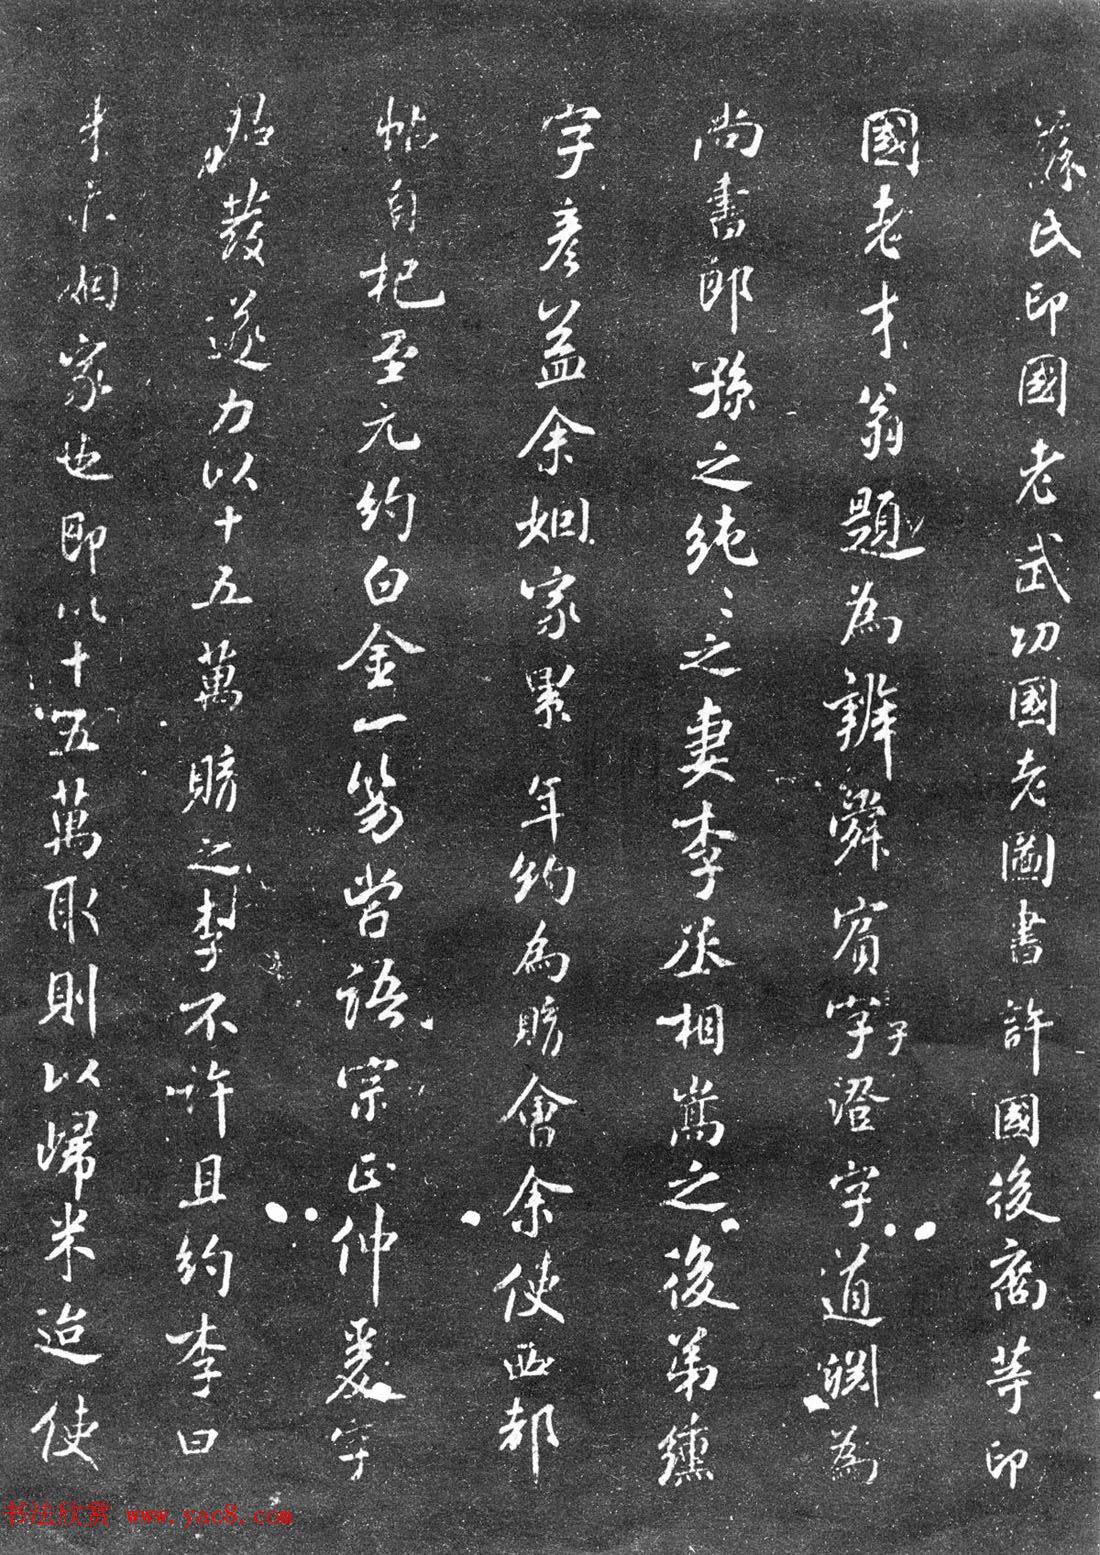 蘇氏印國老武功國老圖書許國後裔等印
國老才翁題為辨舜賓字子澄字道淵為
尚書郎孫之純之純之妻李丞相嵩之後弟纁
字彥益余姻家累年約為購會余使西都
帖自杞至元約白金一笏嘗語宗正仲爰字
君發遂力以十五萬購之李不許且約李曰
米氏姻家也即以十五萬取則以歸米迨使
书法欣赏 www.yac8.com